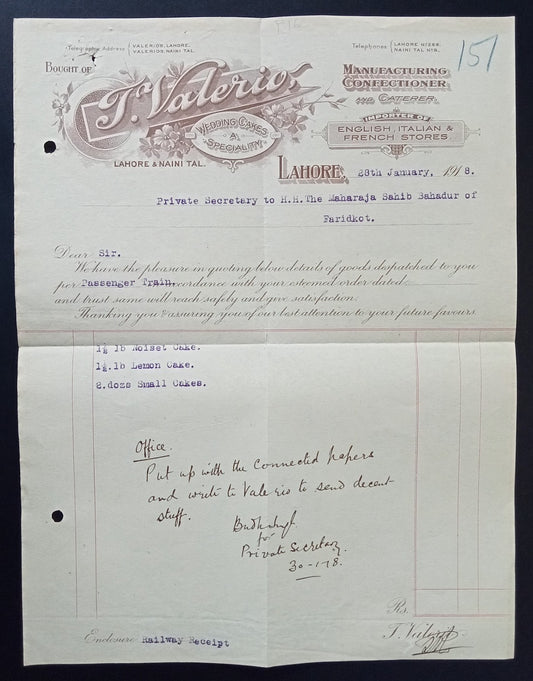 Telegraphic Address VALERIOS, LAHORE.
VALERIOS, NAINI TAL.
Telephones LAHORE
NAINI TAL
151
BOUGHT OF
T. Valerio,
WEDDING CAKES
A
SPECIALITY
LAHORE & NAINI TAL.
MANUFACTURING
CONFECTIONER
AND CATERER.
IMPORTER OF
ENGLISH, ITALIAN &
FRENCH STORES.
LAHORE, 28th January, 1918.
Private Secretary to H.H.The Maharaja Sahib Bahadur of
Faridkot.
Dear Sir.
We have the pleasure in quoting below details of goods despatched to you
per Passenger Train, accordance with your esteemed order dated
and trust same will reach safely and give satisfaction.
Thanking you & assuring you of our best attention to your future favours.
1½ lb Noiset Cake.
1½ lb Lemon Cake.
2.dozs Small Cakes.
Office.
Put up with the connected papers
and write to Valerio to send decent
stuff.
for
Private Secretary
30-1-18.
Rs.
T. Valerio
Enclosure Railway Receipt